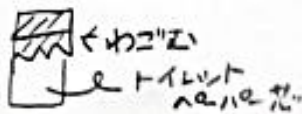 わごむ
トイレット
ペーパー芯